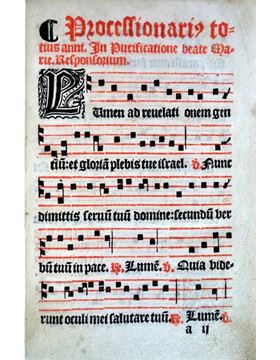 Processionariꝰ to-
tius anni. In Purificatione beate Ma-
rie. Responsorium.
LUmen ad reuelati onem gen
tiū: et gloriā plebis tue israel. ℣. Nunc
dimittis seruū tuū domine: secundū ver
bū tuū in pace. ℟. Lumē. ℣. Quia vide-
runt oculi mei salutare tuū. ℟. Lumē. ℣.
a ij